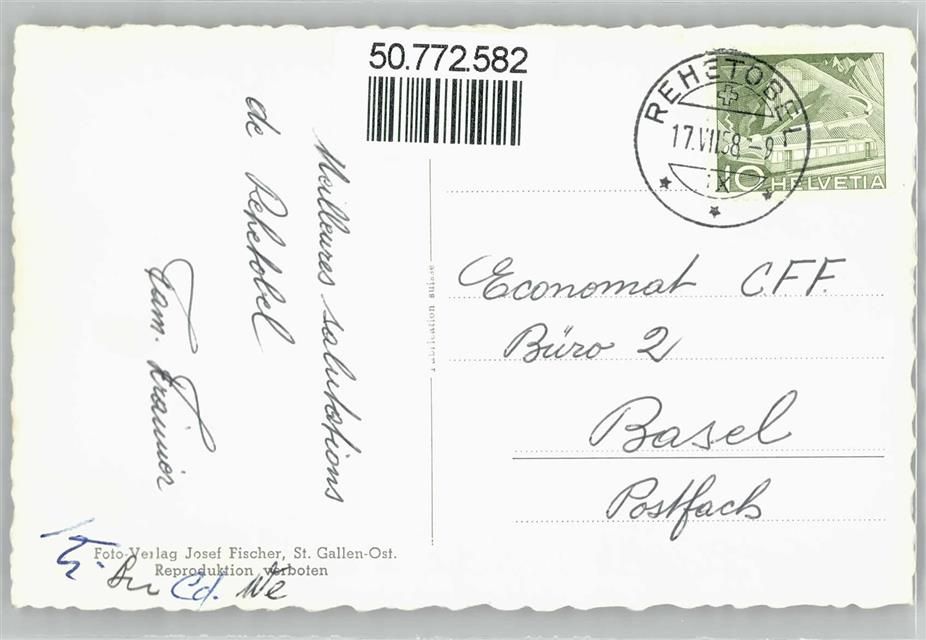 50.772.582
REHETOBEL
17.VII.58.-9
10 HELVETIA
Meilleures salutations
de Rehetobel
Fam.
Economat CFF.
Büro 2
Basel
Postfach
Fabrication suisse
Foto-Verlag Josef Fischer, St. Gallen-Ost.
Reproduktion verboten
Cd. We